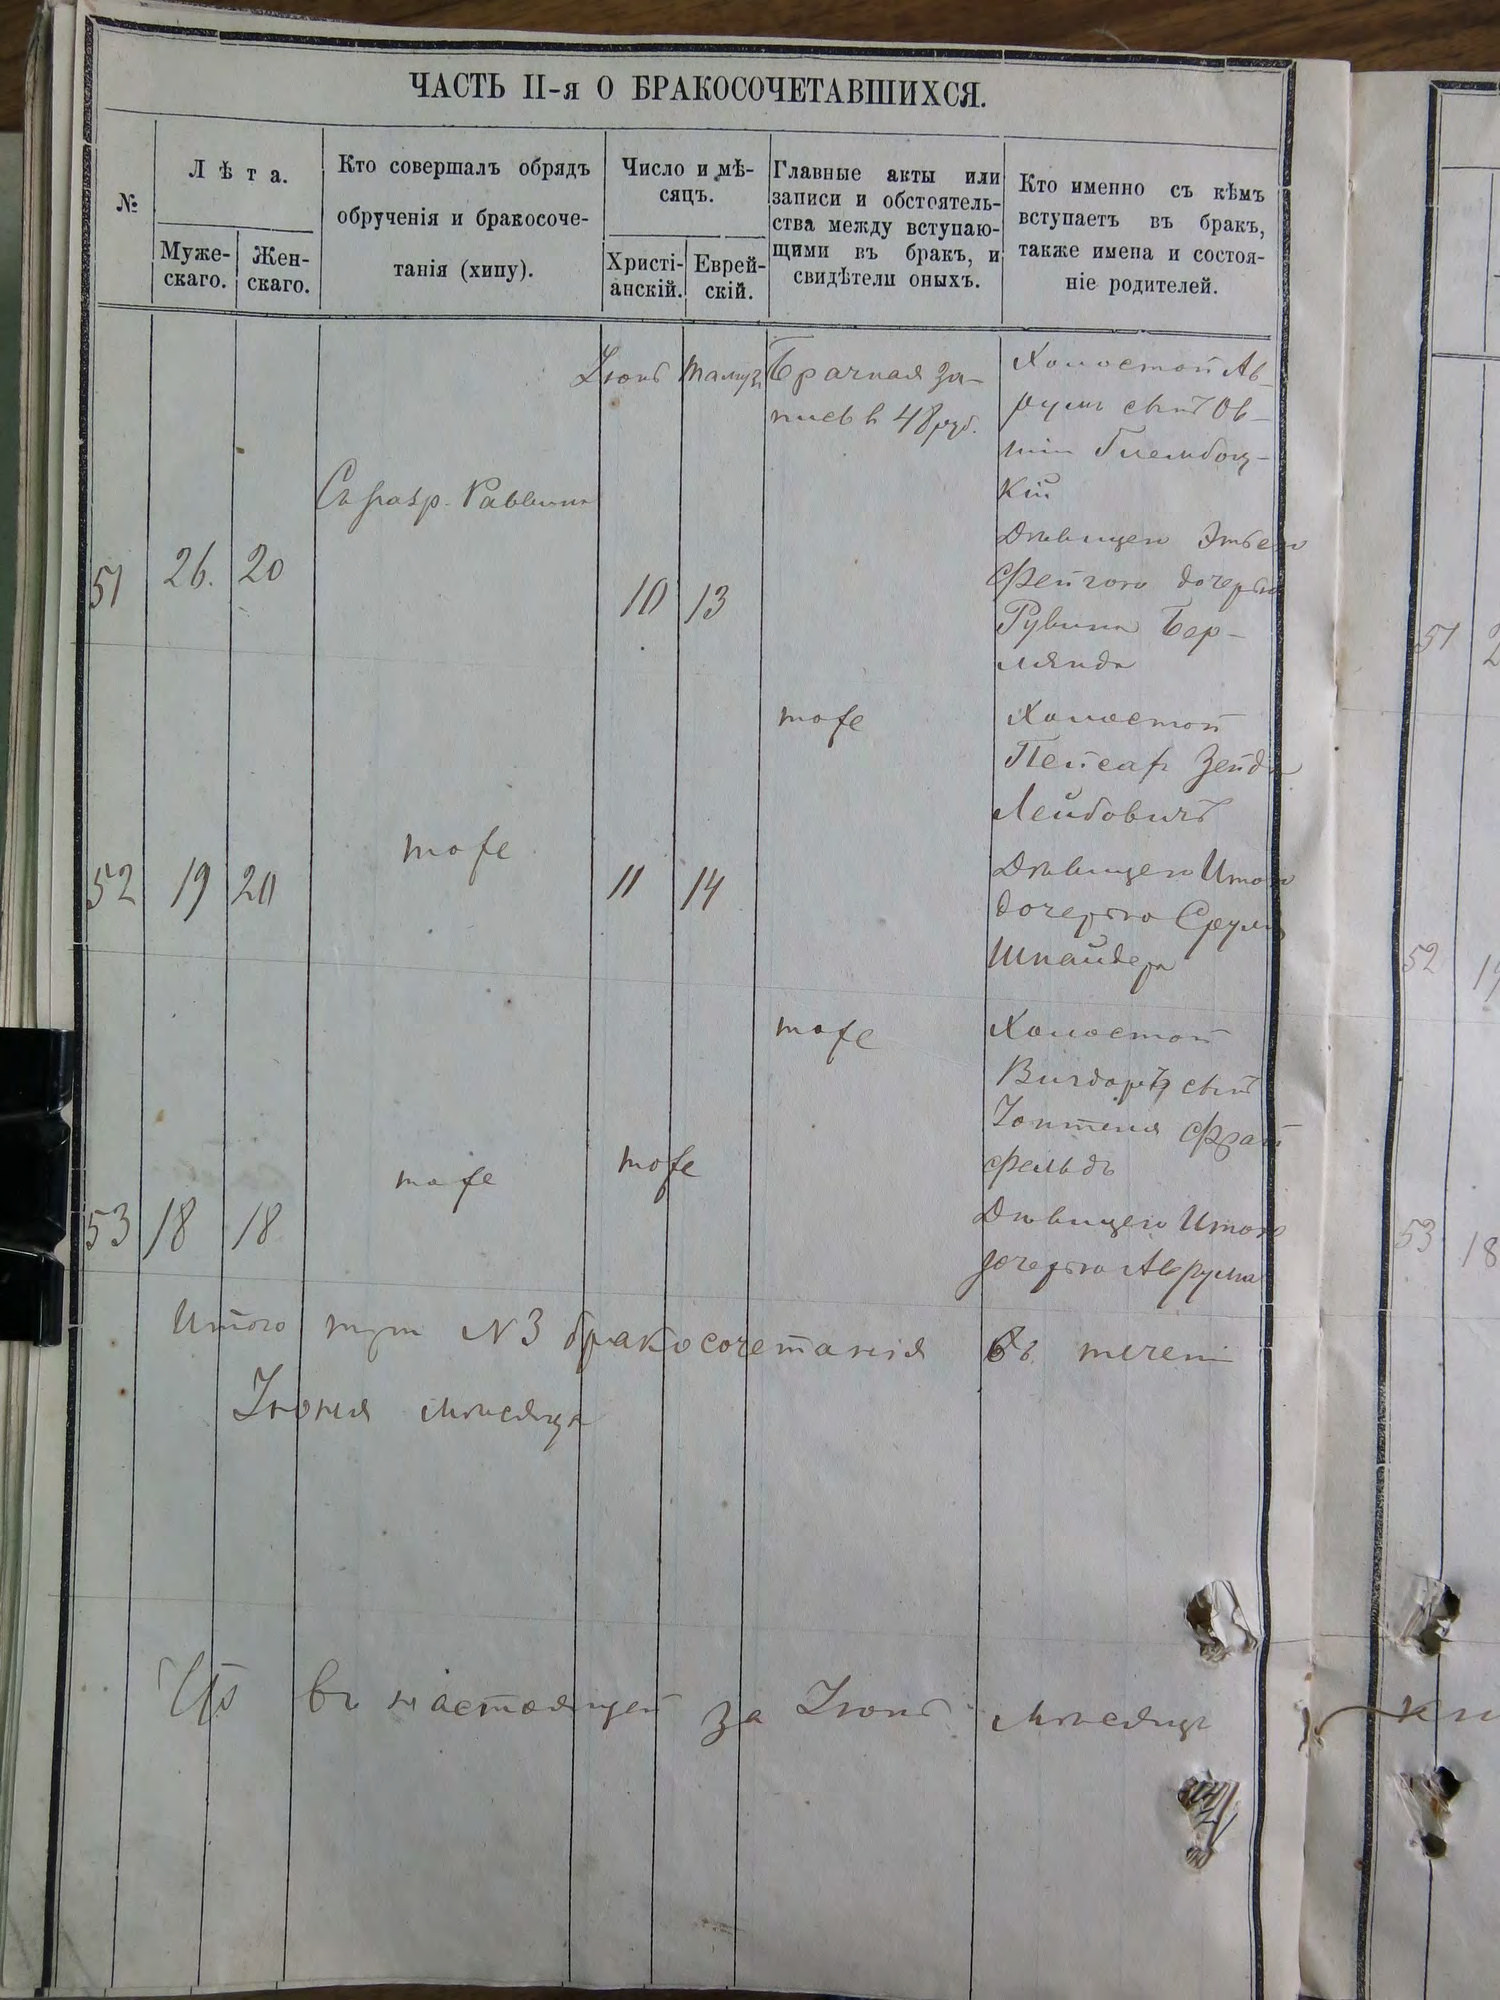 ЧАСТЬ II-я О БРАКОСОЧЕТАВШИХСЯ.
№
Лѣта.
Муже-
скаго.
Жен-
скаго.
Кто совершалъ обрядъ
обрученія и бракосоче-
танія (хипу).
Число и мѣ-
сяцъ.
Христі-
анскій.
Еврей-
скій.
Главные акты или
записи и обстоятель-
ства между вступаю-
щими въ бракъ, и
свидѣтели оныхъ.
Кто именно съ кѣмъ
вступаетъ въ бракъ,
также имена и состоя-
ніе родителей.
51
26.
20
Съ разр. Раввина
Іюнь
10
Тамузъ
13
Брачная за-
пись в 48 руб.
Холостой Ав-
румъ сынъ Ов-
шіи Глембоц-
кій
Дѣвицею
Фейгою дочерью
Рувина Бер-
лянда
52
19
20
тоже
11
14
тоже
Холостой
Пейсах Зейда
Лейбовичъ
Дѣвицею Итою
дочерью Сруля
Шнайдера
53
18
18
тоже
тоже
тоже
Холостой
сынъ
фельдъ
Дѣвицею Итою
дочерью Аврума
Итого тут № 3 бракосочетанія въ течени
Іюня мѣсяца
Что въ настоящей за Іюнь мѣсяцъ
51
52
53
18